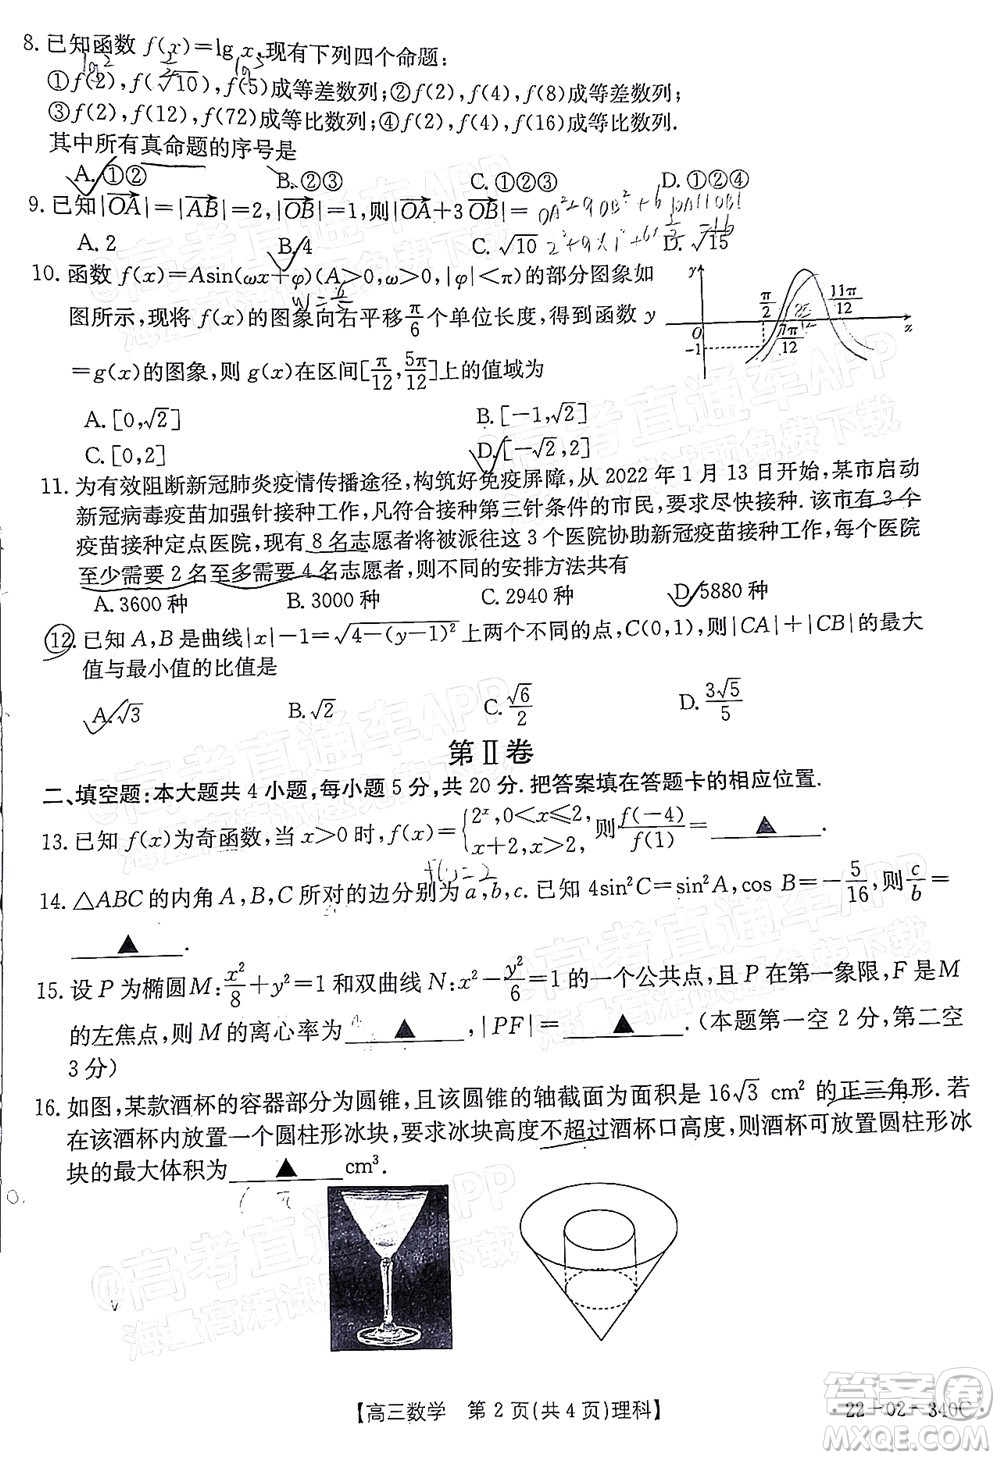 8. 已知函数 f(x)=lg x,现有下列四个命题:
①f(2), f(√10), f(5)成等差数列;②f(2), f(4), f(8)成等差数列;
③f(2), f(12), f(72)成等比数列;④f(2), f(4), f(16)成等比数列.
其中所有真命题的序号是
A. ①② B. ②③ C. ①②③ D. ①②④
9. 已知|OA|=|AB|=2,|OB|=1,则|OA+3OB|=
A. 2 B. 4 C. √10 D. √15
10. 函数 f(x)=Asin(ωx+φ)(A>0,ω>0,|φ|<π)的部分图象如
图所示,现将 f(x)的图象向右平移 π/6 个单位长度,得到函数 y
=g(x)的图象,则 g(x)在区间[π/12, 5π/12]上的值域为
y π/2 11π/12 O 7π/12 x -1
A. [0,√2] B. [-1,√2]
C. [0,2] D. [-√2,2]
11. 为有效阻断新冠肺炎疫情传播途径,构筑好免疫屏障,从 2022 年 1 月 13 日开始,某市启动
新冠病毒疫苗加强针接种工作,凡符合接种第三针条件的市民,要求尽快接种.该市有 3 个
疫苗接种定点医院,现有 8 名志愿者将被派往这 3 个医院协助新冠疫苗接种工作,每个医院
至少需要 2 名至多需要 4 名志愿者,则不同的安排方法共有
A. 3600 种 B. 3000 种 C. 2940 种 D. 5880 种
12. 已知 A,B 是曲线|x|-1=√(4-(y-1)²)上两个不同的点,C(0,1),则|CA|+|CB|的最大
值与最小值的比值是
A. √3 B. √2 C. √6/2 D. 3√5/5
第Ⅱ卷
二、填空题:本大题共 4 小题,每小题 5 分,共 20 分.把答案填在答题卡的相应位置.
13. 已知 f(x)为奇函数,当 x>0 时,f(x)={2ˣ,0<x≤2, x+2,x>2, 则 f(-4)/f(1)=____▲____.
14. △ABC 的内角 A,B,C 所对的边分别为 a,b,c.已知 4sin²C=sin²A,cos B=-5/16,则 c/b=
____▲____.
15. 设 P 为椭圆 M:x²/8+y²=1 和双曲线 N:x²-y²/6=1 的一个公共点,且 P 在第一象限,F 是 M
的左焦点,则 M 的离心率为____▲____,|PF|=____▲____.(本题第一空 2 分,第二空
3 分)
16. 如图,某款酒杯的容器部分为圆锥,且该圆锥的轴截面为面积是 16√3 cm² 的正三角形.若
在该酒杯内放置一个圆柱形冰块,要求冰块高度不超过酒杯口高度,则酒杯可放置圆柱形冰
块的最大体积为____▲____cm³.
【高三数学 第 2 页(共 4 页)理科】
·22-02-340C·
答案圈
MXQE.COM